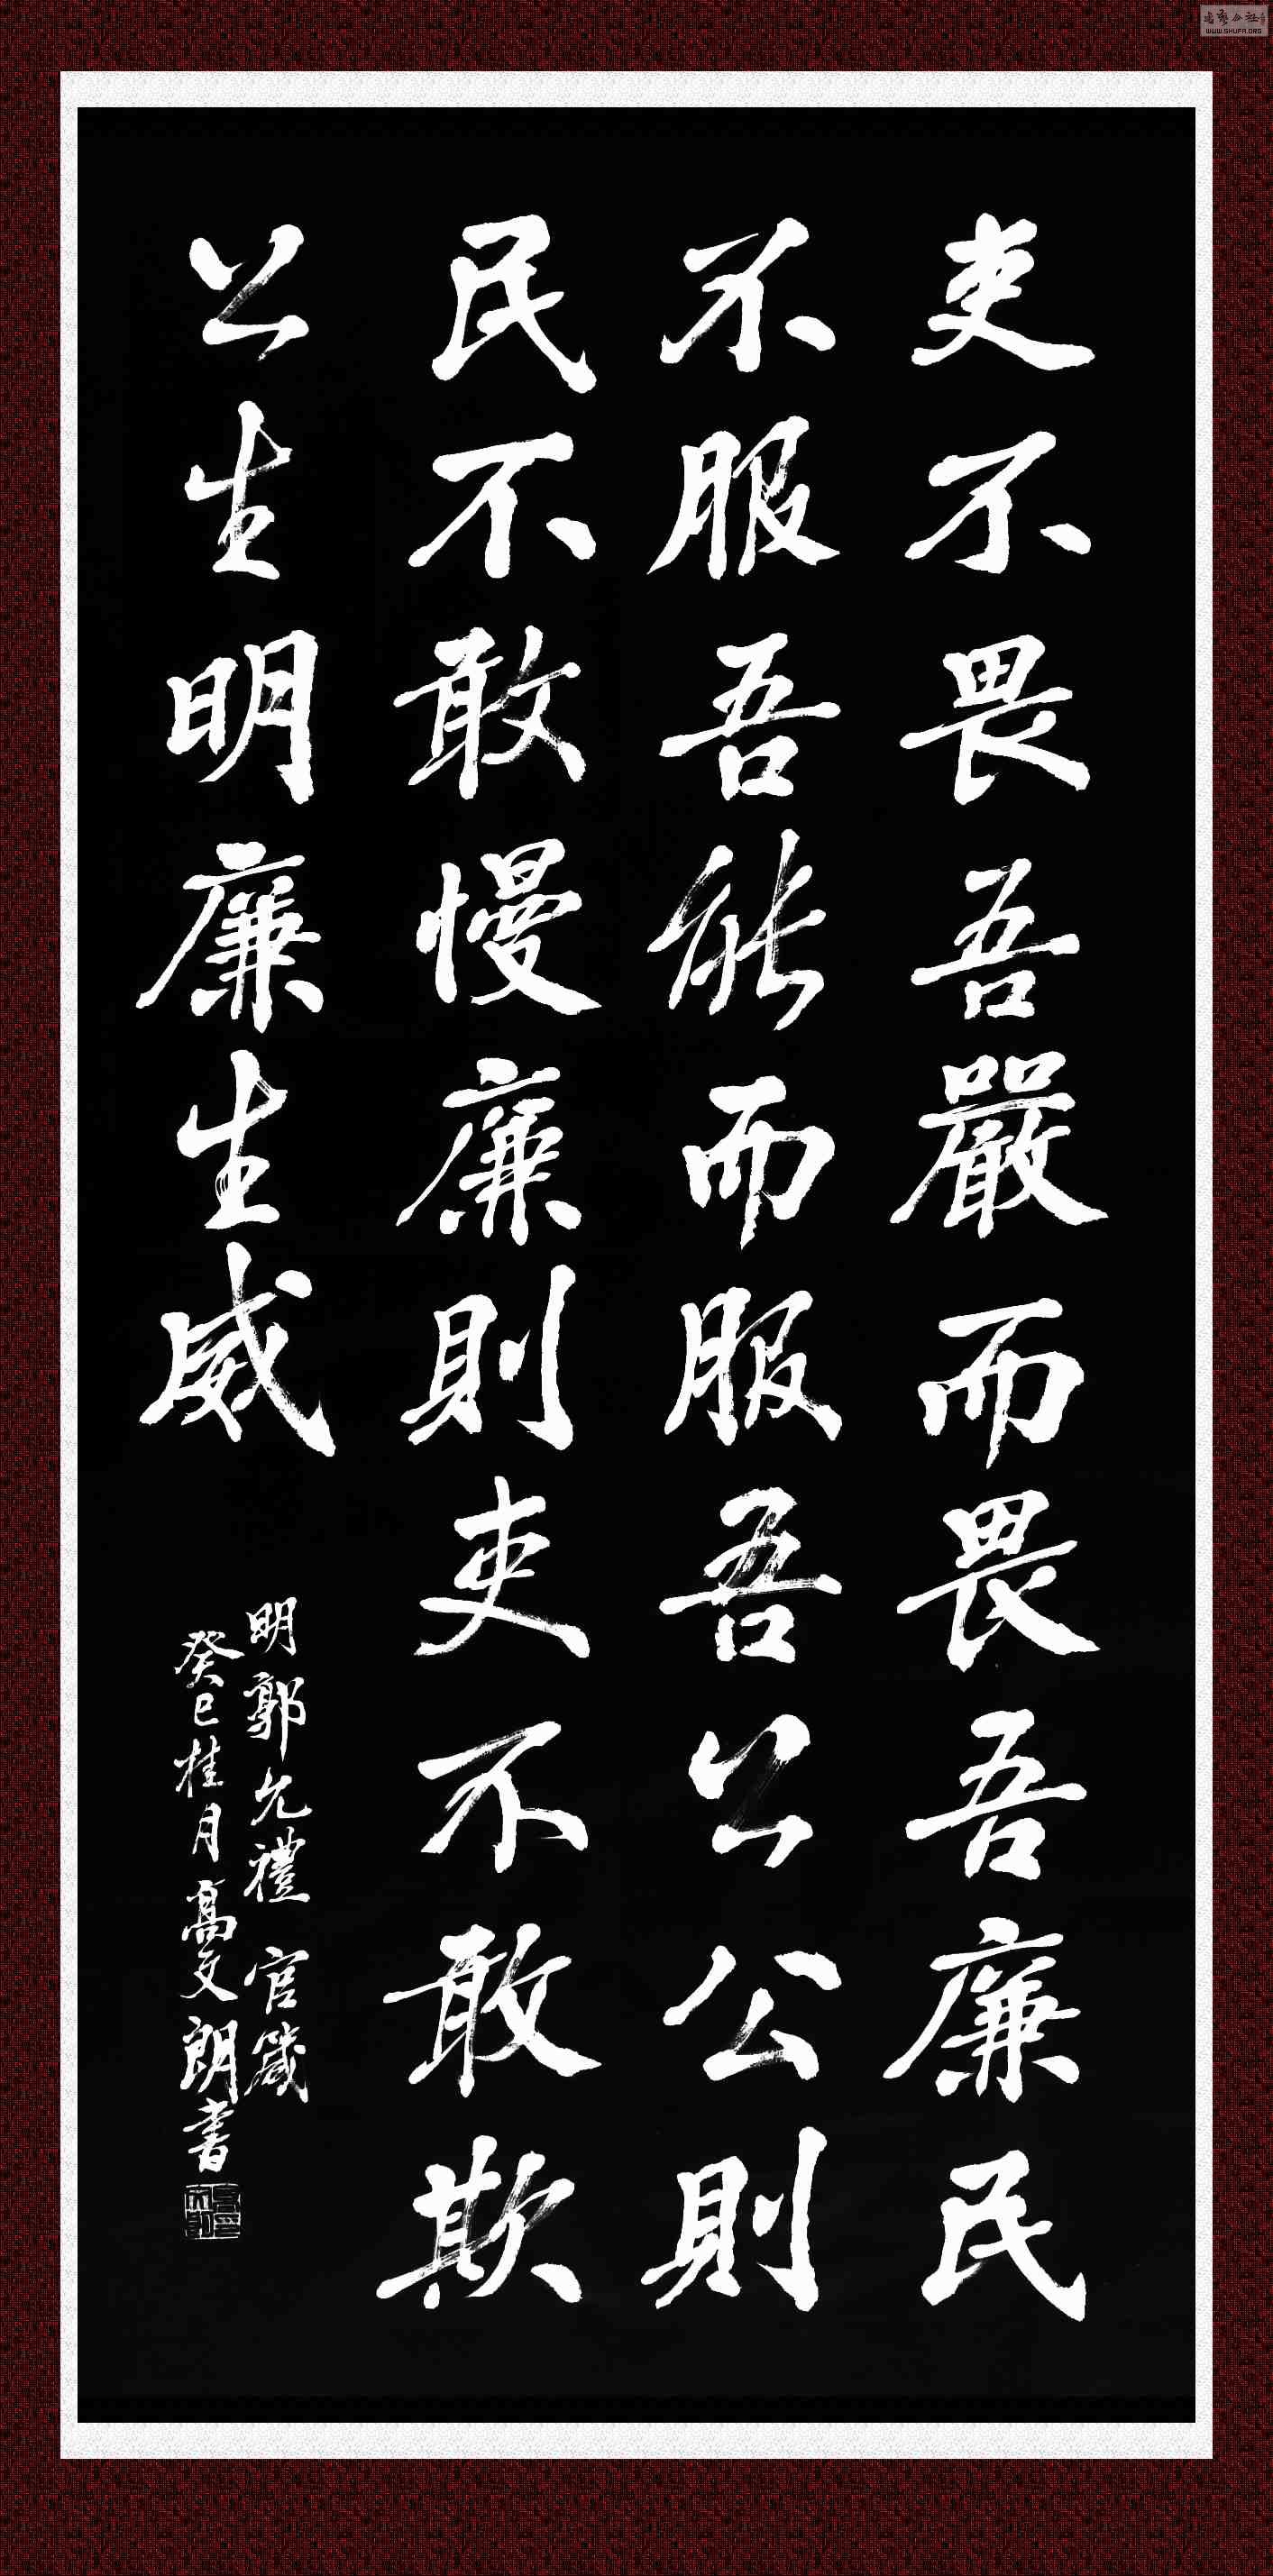 吏不畏吾嚴而畏吾廉民
不服吾能而服吾公公則
民不敢慢廉則吏不敢欺
公生明廉生威
明郭允禮 官箴
癸巳桂月高文朗書
WWW.SHUFA.ORG